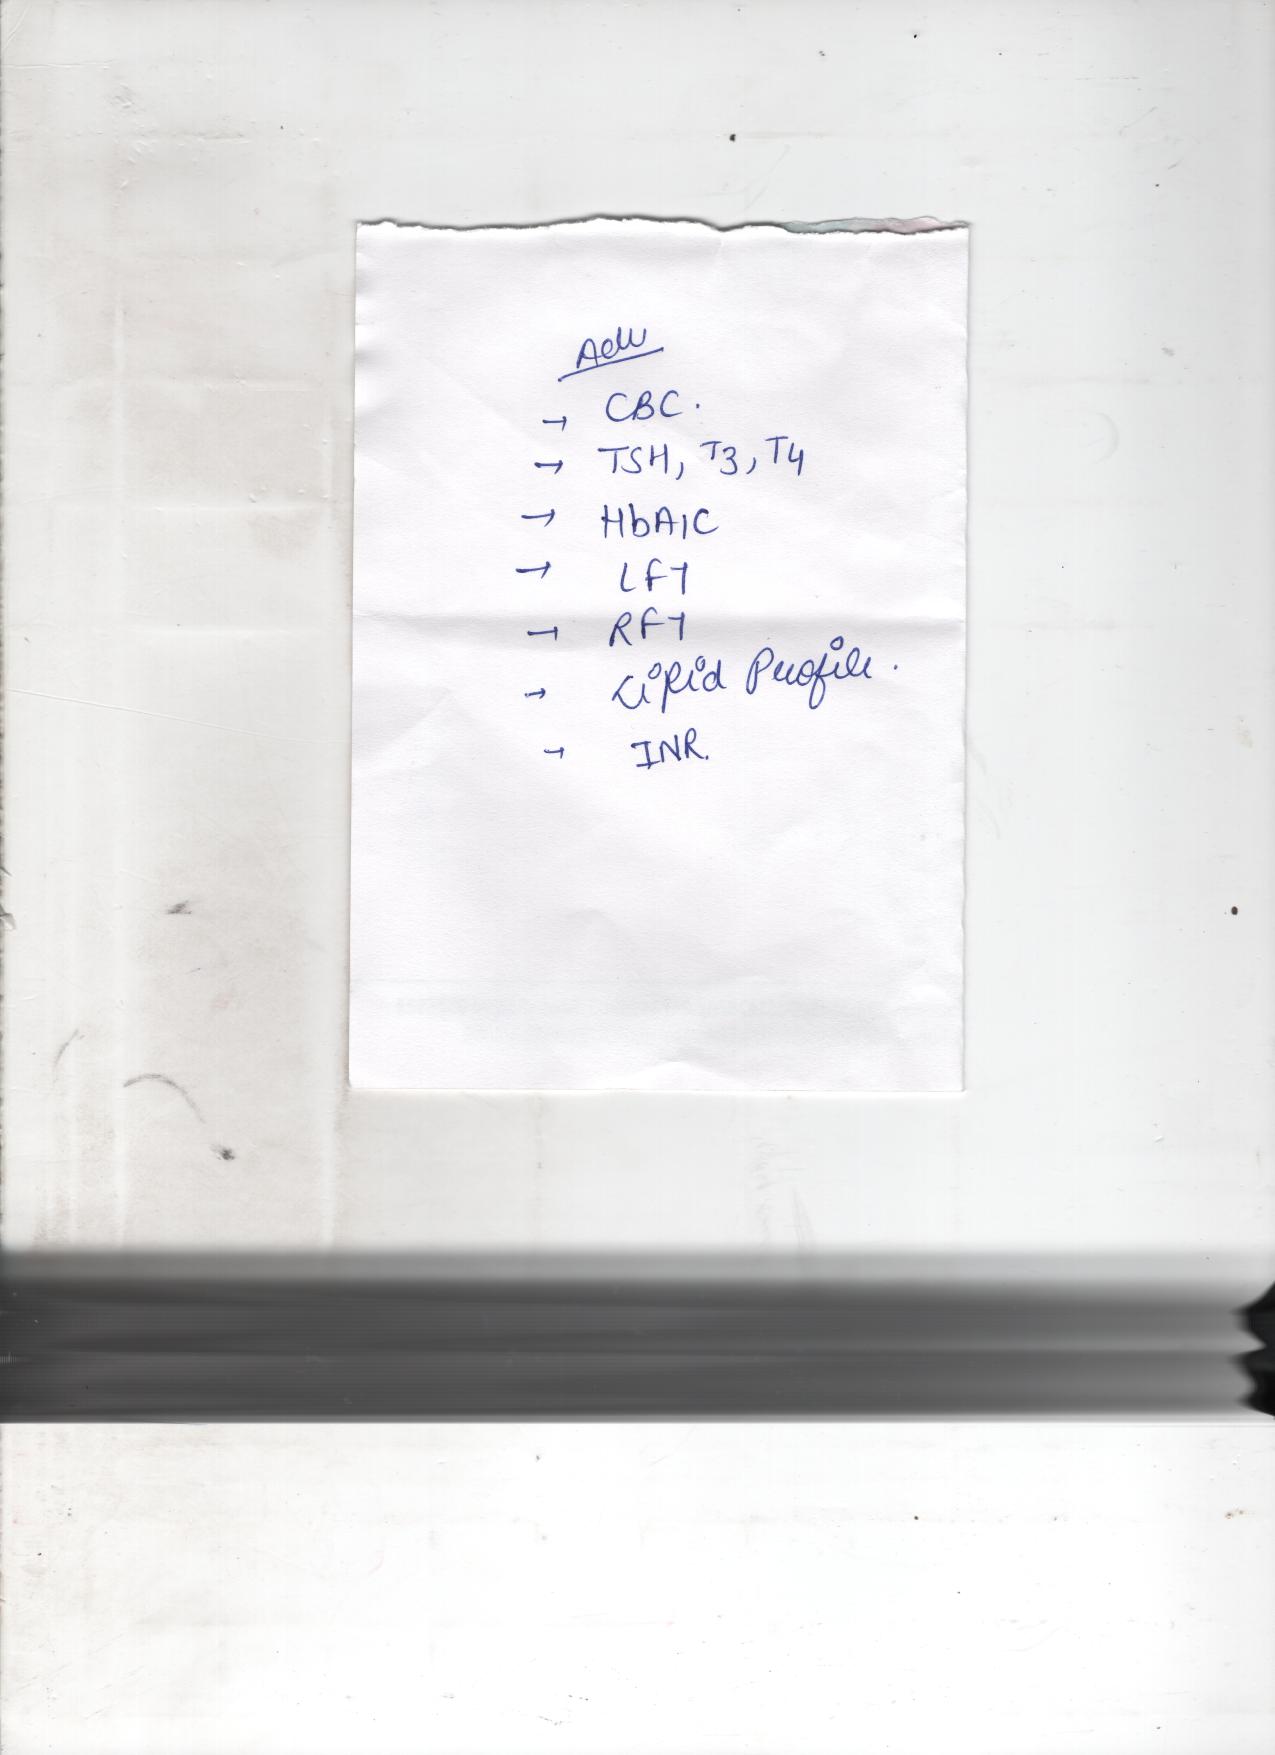 Adv
→ CBC.
→ TSH, T3, T4
→ HbA1C
→ LFT
→ RFT
→ Lipid Profile.
→ INR.